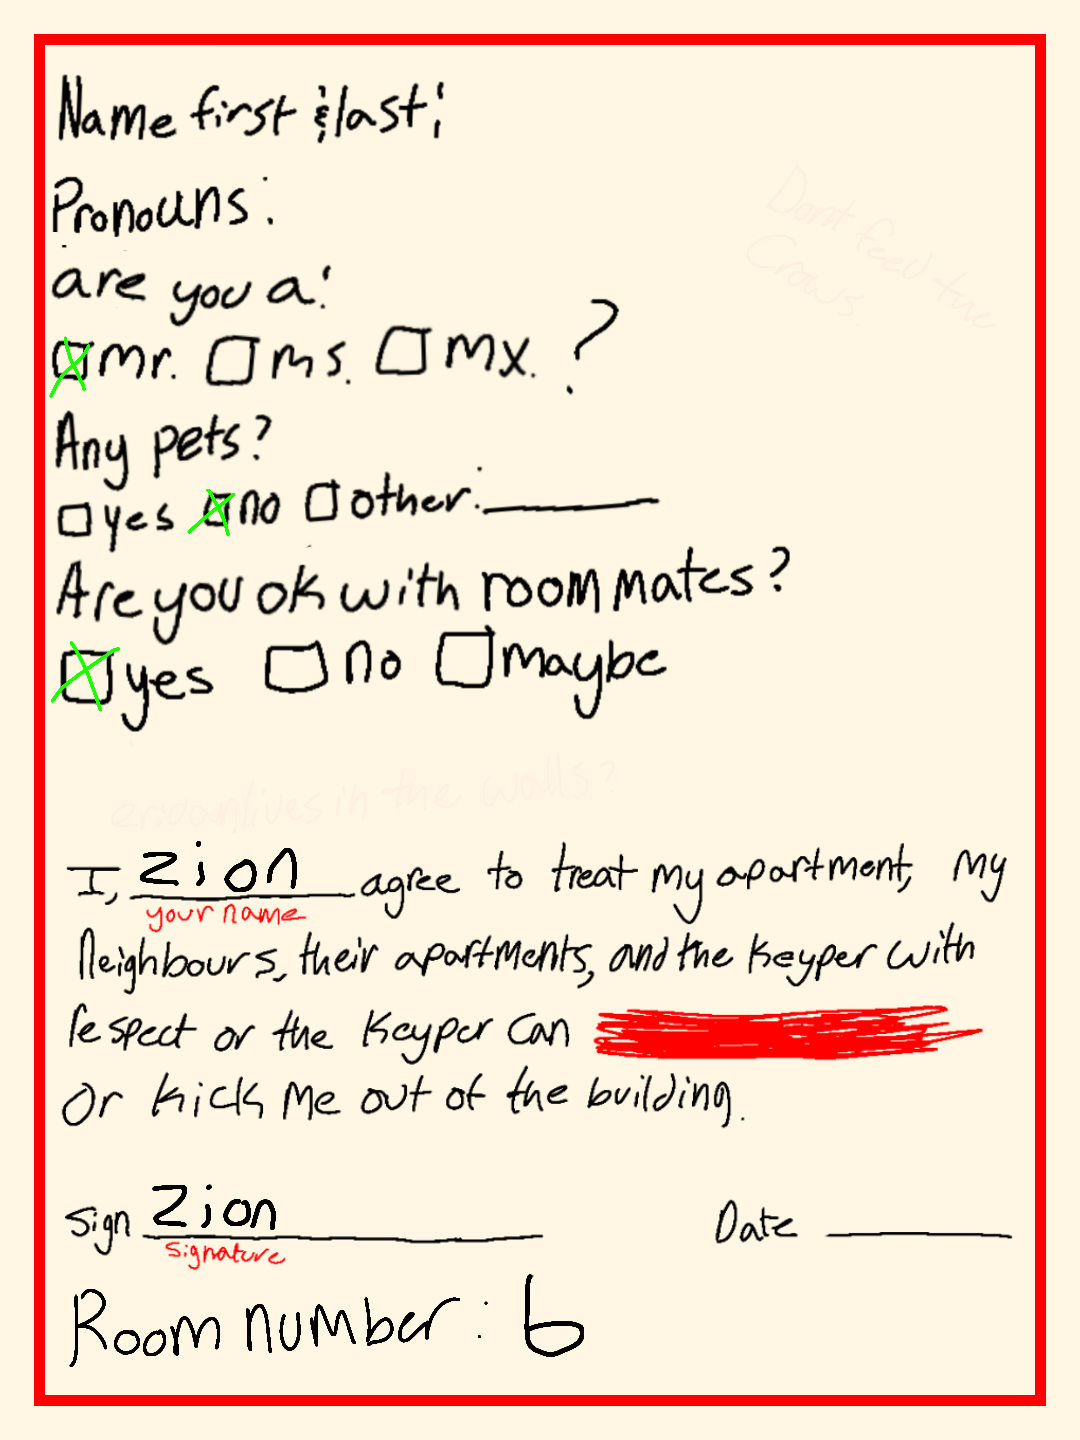 Name first & last:
Pronouns:
Dont feed the
Crows.
are you a:
mr. ms. mx. ?
Any pets?
yes no other: ______
Are you ok with roommates?
yes no maybe
lives in the walls?
I, Zion agree to treat my apartment, my
your name
Neighbours, their apartments, and the Keyper with
respect or the Keyper can
or kick me out of the building.
Sign Zion Date ______
signature
Room number: 6